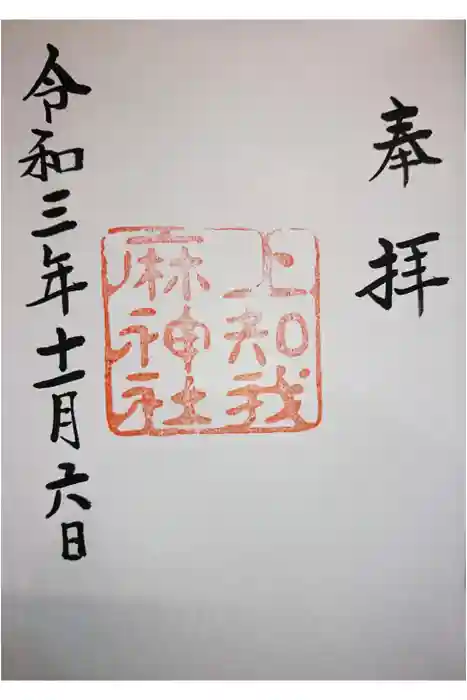 奉拝
上知我
麻神社
令和三年十一月六日